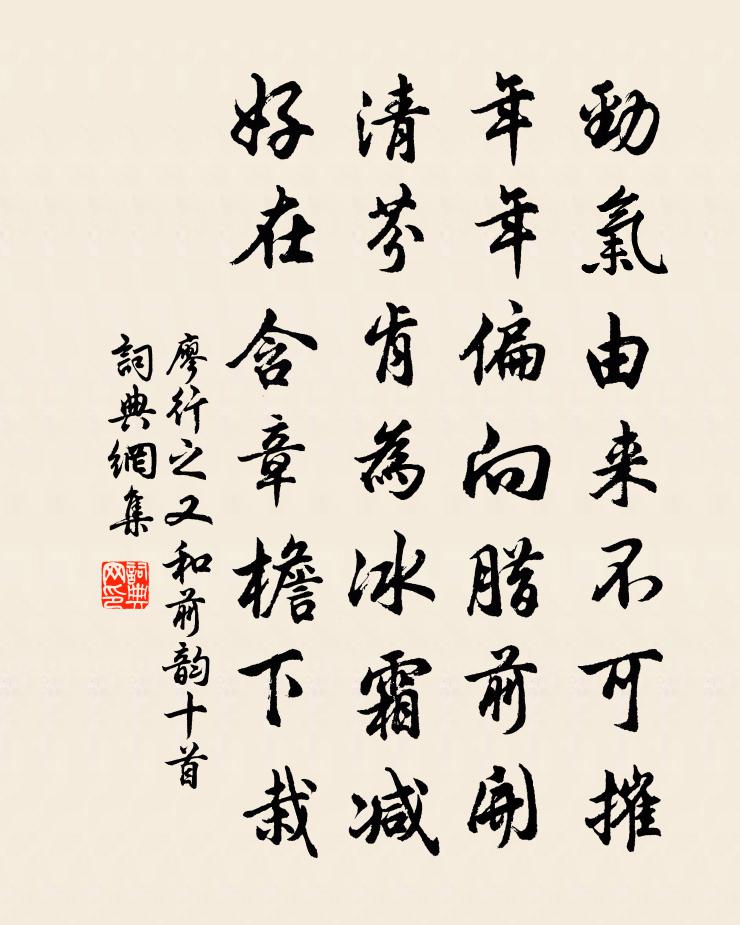 勁氣由来不可摧
年年偏向腊前開
清芬肯為冰霜減
好在含章檐下栽
廖行之又和前韵十首
詞典網集
詞典网印